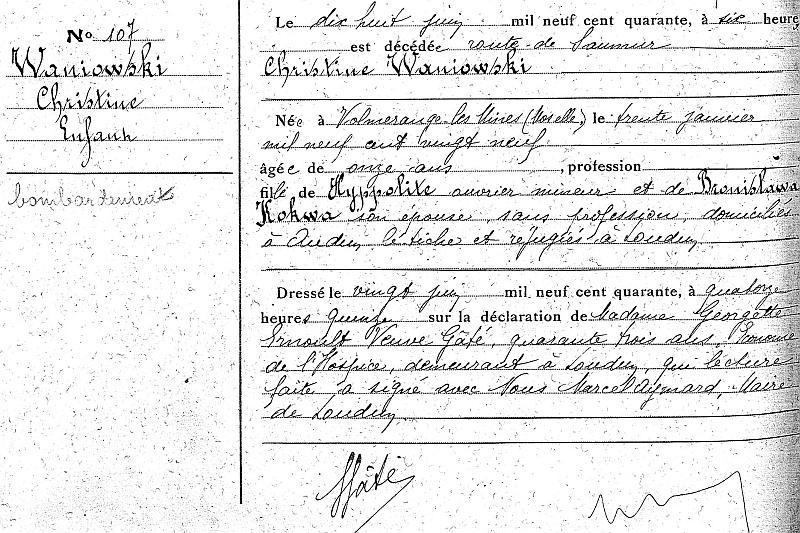 No 107
Waniowski
Christine
Enfant
bombardement
Le dix huit juin mil neuf cent quarante, à six heures
est décédée route de Saumur
Christine Waniowski
Née à Volmerange-les-Mines (Moselle), le trente janvier
mil neuf cent vingt neuf
âgée de onze ans, profession
fille de Hyppolite ouvrier mineur et de Bronislawa
Kokwa son épouse, sans profession, domiciliés
à Audun le tiche et réfugiés à Loudun
Dressé le vingt juin mil neuf cent quarante, à quatorze
heures quinze sur la déclaration de Madame Georgette
Ernoult Veuve Gâté, quarante trois ans, Econome
de l'Hospice, demeurant à Loudun, qui lecture
faite, a signé avec Nous Marcel Aymard, Maire
de Loudun
Gâté